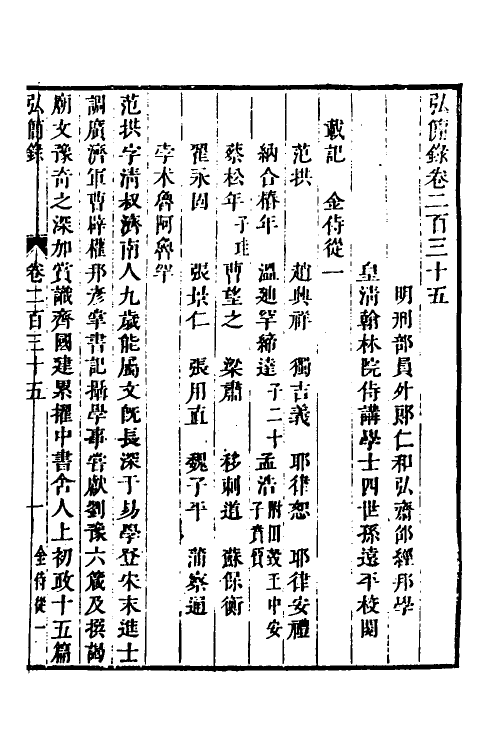 弘簡錄卷二百三十五
明刑部員外郎仁和弘齋邵經邦學
皇清翰林院侍講學士四世孫遠平校閱
載記 金侍從一
范拱 趙興祥 獨吉義 耶律恕 耶律安禮
納合椿年 溫迪罕締達 子二十 孟浩 附田瑴王中安 子賁質
蔡松年 子珪 曹望之 梁肅 移剌道 蘇保衡
翟永固 張景仁 張用直 魏子平 蒲察通
孛术魯阿魯罕
范拱字清叔濟南人九歲能屬文旣長深于易學登宋末進士
調廣濟軍曹辟權邦彥掌書記攝學事嘗獻劉豫六箴及撰謁
廟文豫奇之深加賞識齊國建累擢中書舍人上初政十五篇
弘簡錄 卷二百三十五 一 金侍從一